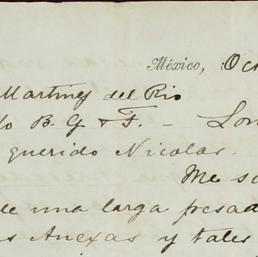 México, Oc
Martinez del Rio
o B. G. & F. - Lon
querido Nicolas.
Me s
e una larga pesad
s Anexas y tales